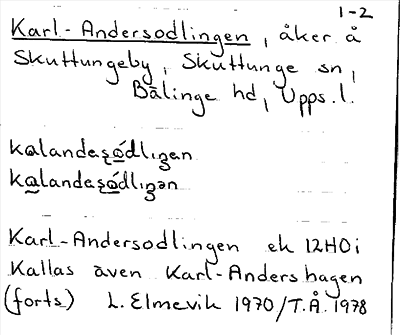 1-2
Karl-Andersodlingen, åker å
Skuttungeby, Skuttunge sn,
Bälinge hd, Upps. l.
kalandeʂódlıŋen
kalandeʂódlıŋən
Karl-Andersodlingen ek 12H0i
Kallas även Karl-Anders hagen
(forts) L. Elmevik 1970/T.Å. 1978